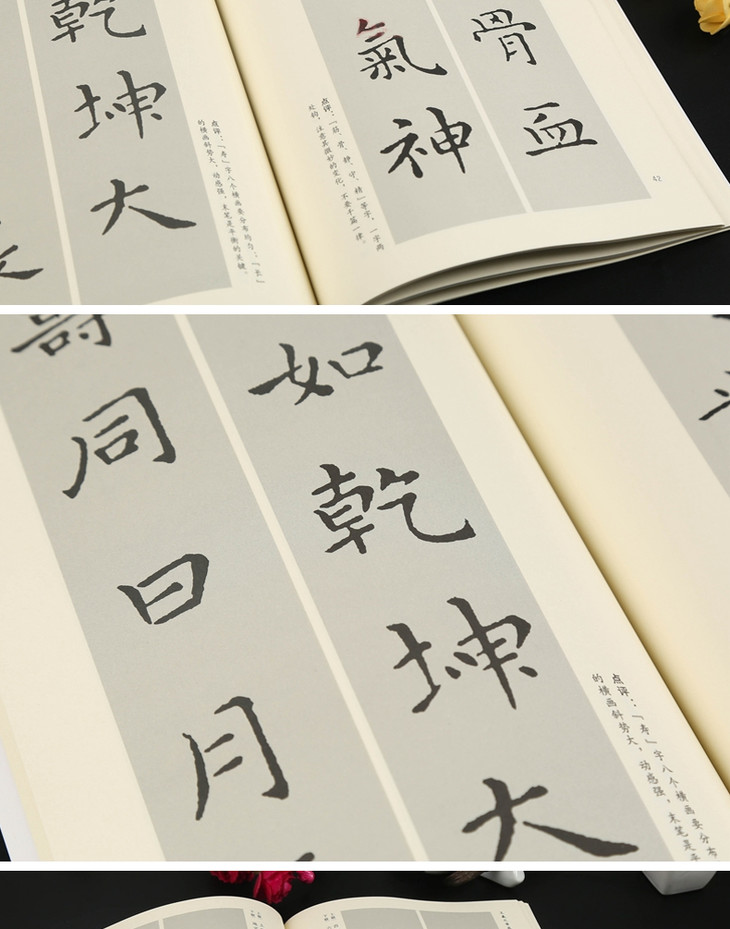 骨血
氣神
点评:「筋、骨、静、守、精」等字,一字两
处钩,注意其微妙的变化,不要千篇一律。
42
乾坤大
点评:「寿」字八个横画要分布均匀;「长」
的横画斜势大,动感强,末笔是平衡的关键。
如乾坤大
同日月
点评:「寿」字八个横画要分布
的横画斜势大,动感强,末笔是平